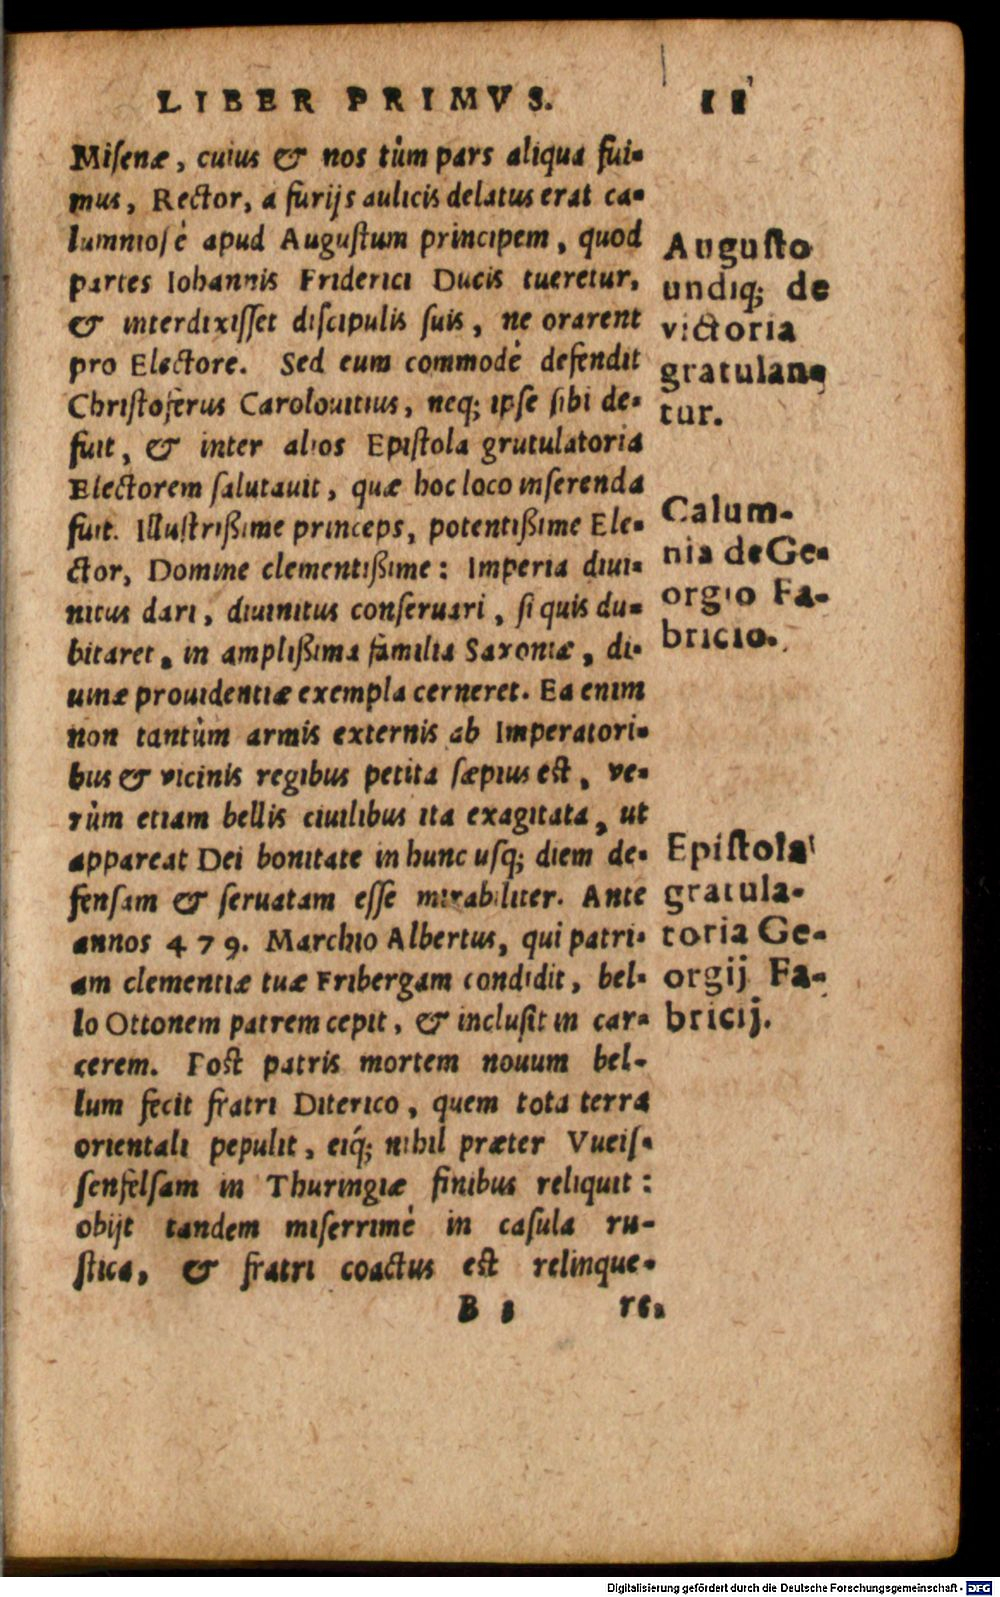 LIBER PRIMVS. 11
Misenæ, cuius & nos tùm pars aliqua fui-
mus, Rector, a furijs aulicis delatus erat ca-
lumniosè apud Augustum principem, quod
partes Iohannis Friderici Ducis tueretur,
& interdixisset discipulis suis, ne orarent
pro Electore. Sed eum commodè defendit
Christoferus Carolouitius, neq; ipse sibi de-
fuit, & inter alios Epistola grutulatoria
Electorem salutauit, quæ hoc loco inserenda
fuit. Illustrißime princeps, potentißime Ele-
ctor, Domine clementißime: Imperia diui-
nitus dari, diuinitus conseruari, si quis du-
bitaret, in amplißima familia Saxoniæ, di-
uinæ prouidentiæ exempla cerneret. Ea enim
non tantùm armis externis ab Imperatori-
bus & vicinis regibus petita sæpius est, ve-
rùm etiam bellis ciuilibus ita exagitata, ut
appareat Dei bonitate in hunc usq; diem de-
fensam & seruatam esse mirabiliter. Ante
annos 479. Marchio Albertus, qui patri-
am clementiæ tuæ Fribergam condidit, bel-
lo Ottonem patrem cepit, & inclusit in car-
cerem. Post patris mortem nouum bel-
lum fecit fratri Diterico, quem tota terra
orientali pepulit, eiq́; nihil præter Vueis-
senfelsam in Thuringiæ finibus reliquit:
obijt tandem miserrimè in casula ru-
stica, & fratri coactus est relinque-
B 3 re.
Augusto
undiq; de
victoria
gratulan-
tur.
Calum-
nia de Ge-
orgio Fa-
bricio.
Epistola
gratula-
toria Ge-
orgij Fa-
bricij.
Digitalisierung gefördert durch die Deutsche Forschungsgemeinschaft - DFG